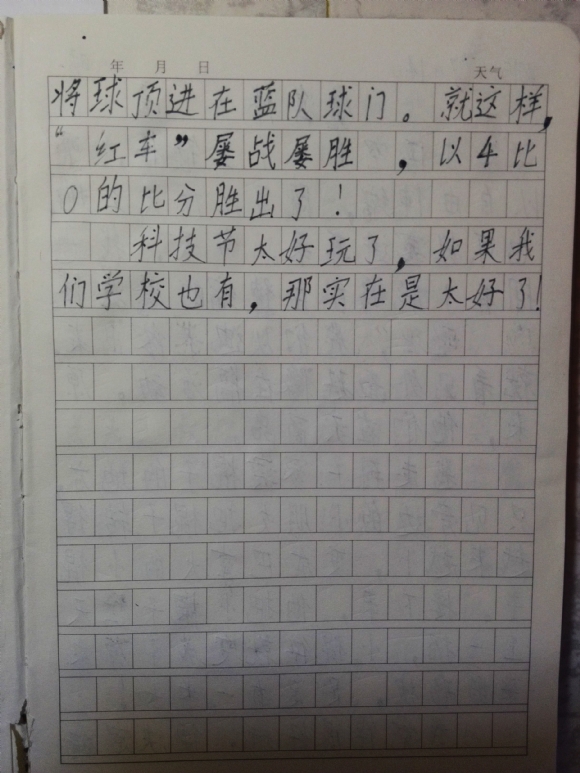 年 月 日 天气
将球顶进在蓝队球门。就这样,
“红车”屡战屡胜,以4比
0的比分胜出了!
科技节太好玩了,如果我
们学校也有,那实在是太好了!